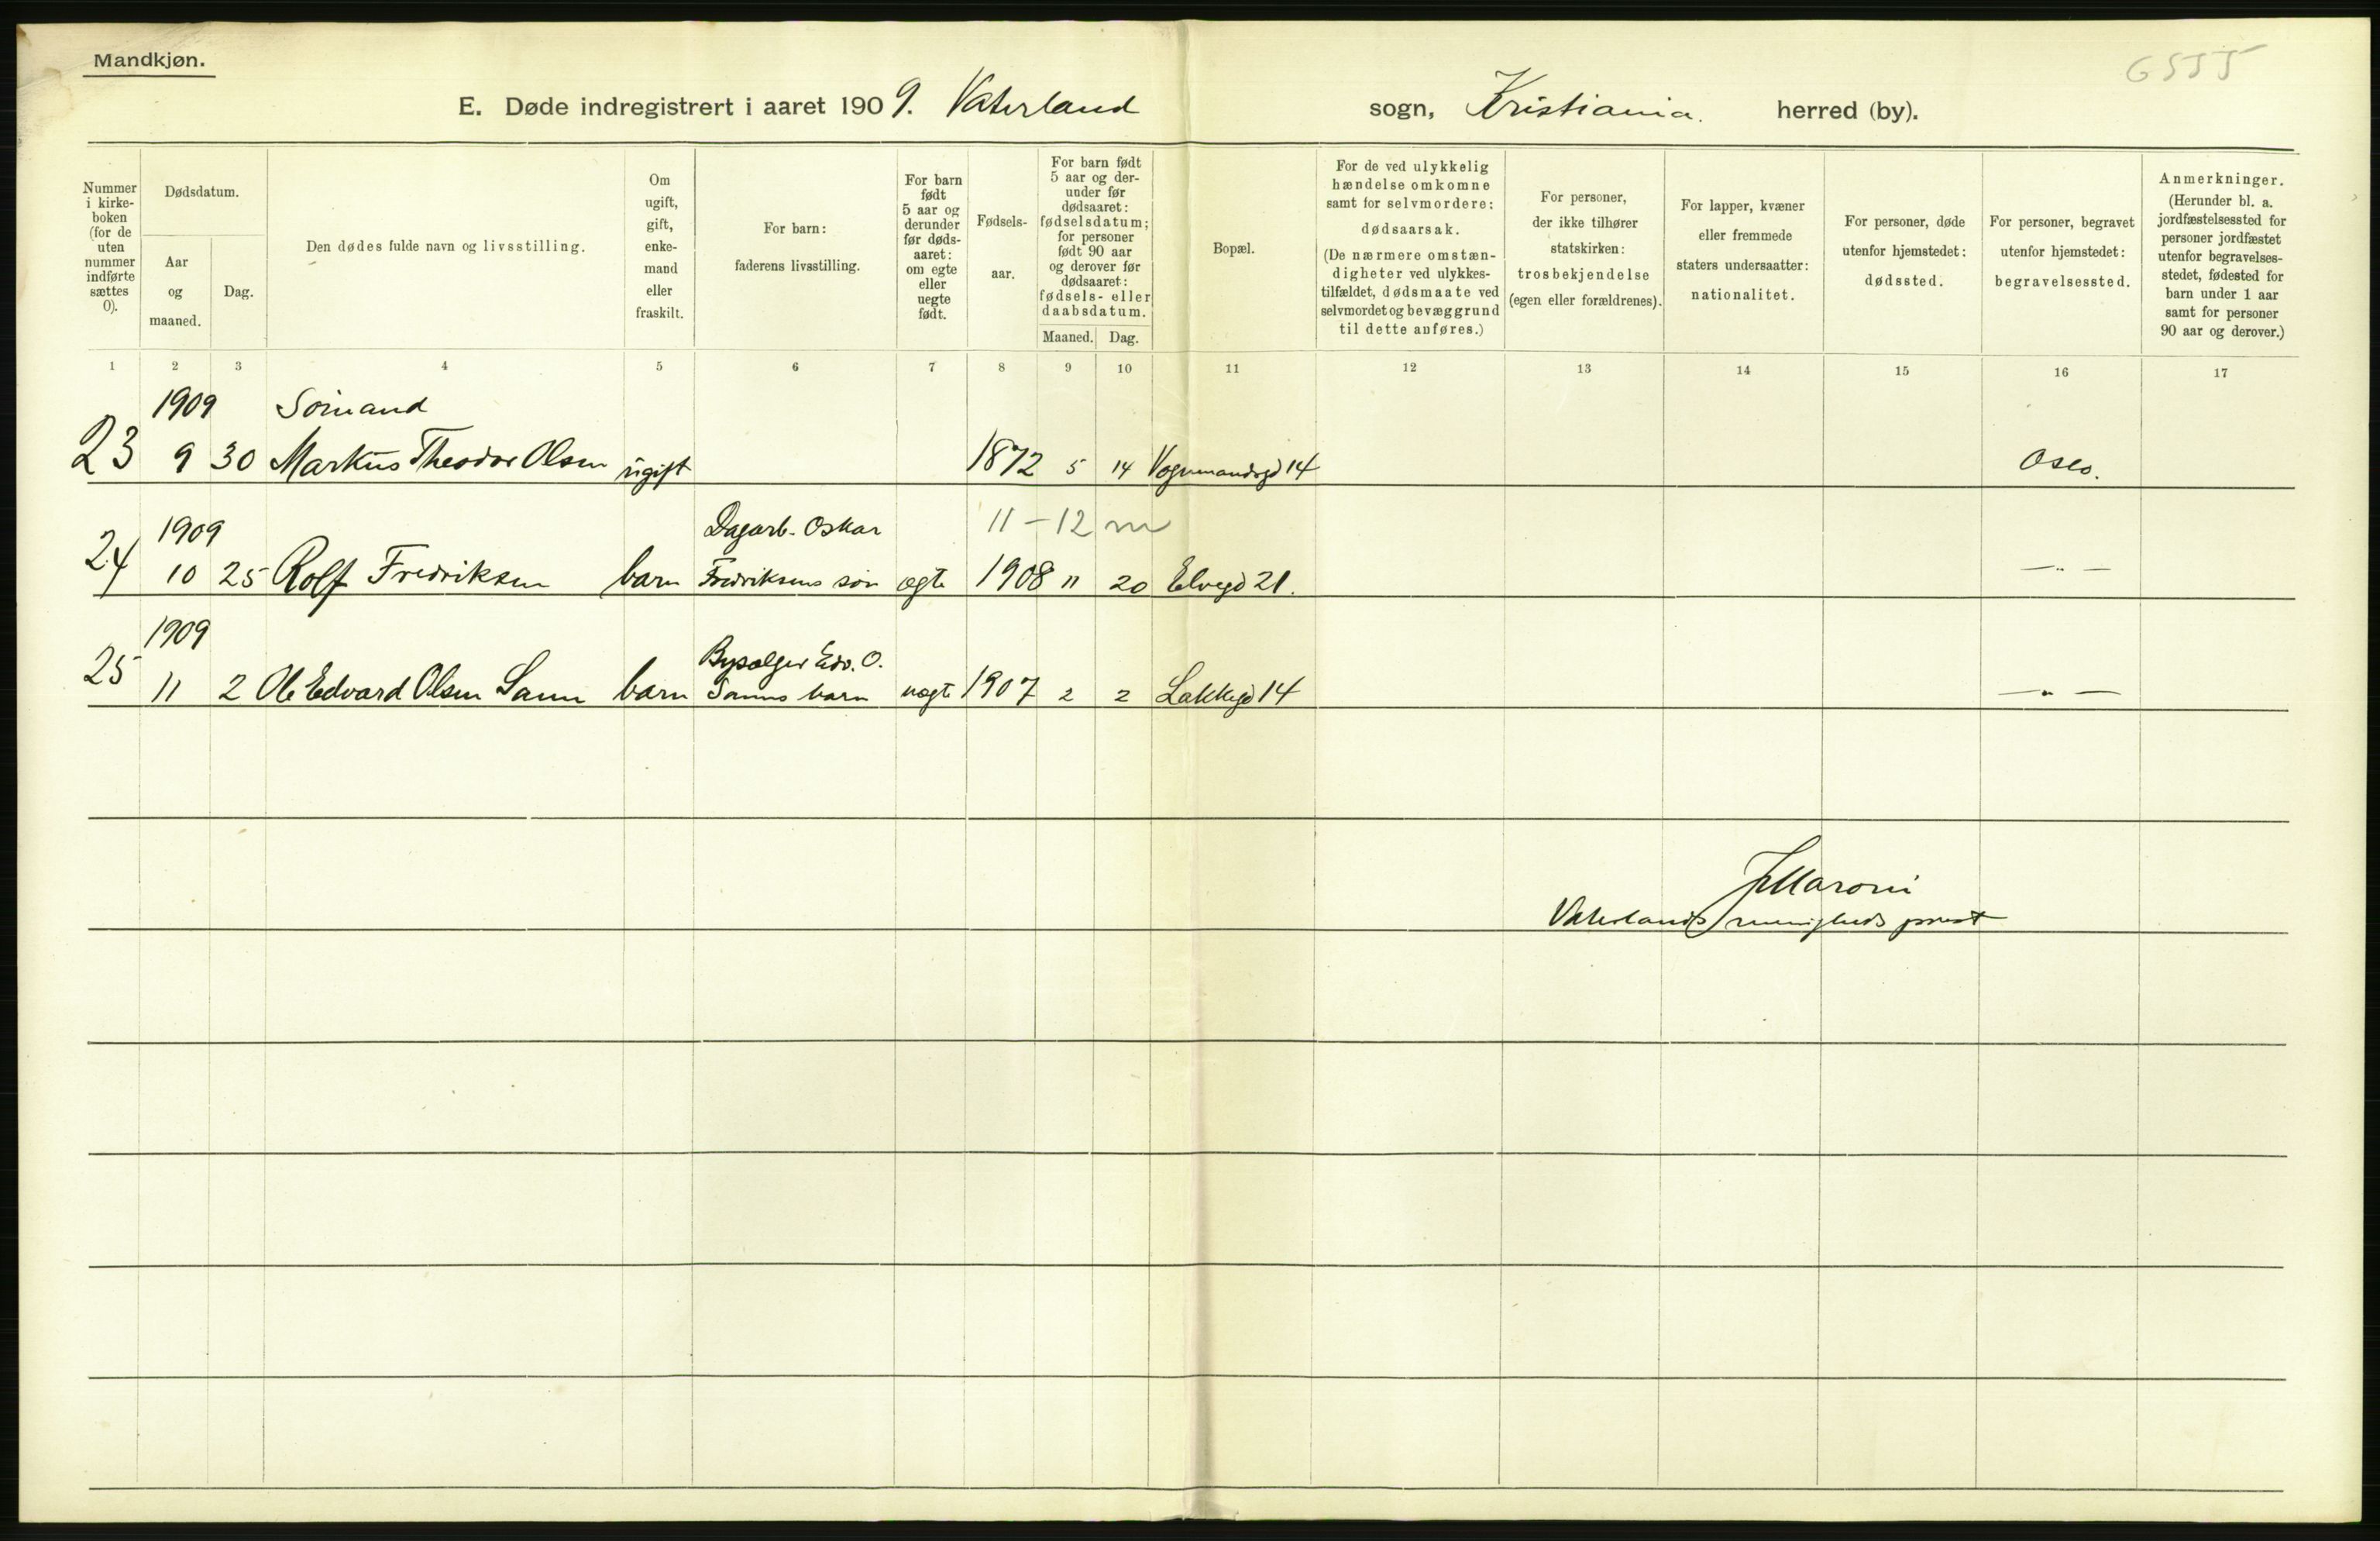 Mandkjøn.
6555
E. Døde indregistrert i aaret 1909. Vaterland sogn, Kristiania. herred (by).
Nummer i kirke-boken (for de uten nummer indførte sættes 0).
Dødsdatum.
Aar og maaned.
Dag.
Den dødes fulde navn og livsstilling.
Om ugift, gift, enke-mand eller fraskilt.
For barn: faderens livsstilling.
For barn født 5 aar og derunder før døds-aaret: om egte eller uegte født.
Fødsels-aar.
For barn født 5 aar og der-under før dødsaaret: fødselsdatum; for personer født 90 aar og derover før dødsaaret: fødsels- eller daabsdatum.
Maaned. Dag.
Bopæl.
For de ved ulykkelig hændelse omkomne samt for selvmordere: dødsaarsak. (De nærmere omstæn-digheter ved ulykkes-tilfældet, dødsmaate ved selvmordet og bevæggrund til dette anføres.)
For personer, der ikke tilhører statskirken: trosbekjendelse (egen eller forældrenes).
For lapper, kvæner eller fremmede staters undersaatter: nationalitet.
For personer, døde utenfor hjemstedet: dødssted.
For personer, begravet utenfor hjemstedet: begravelsessted.
Anmerkninger. (Herunder bl. a. jordfæstelsessted for personer jordfæstet utenfor begravelses-stedet, fødested for barn under 1 aar samt for personer 90 aar og derover.)
1 2 3 4 5 6 7 8 9 10 11 12 13 14 15 16 17
1909 Sömand
23 9 30 Markus Theodor Olsen ugift 1872 5 14 Vognmandsgd 14 Oslo.
1909 Dagarb. Oskar 11-12 m
24 10 25 Rolf Fredriksen barn Fredriksens søn egte 1908 11 20 Elvegd 21. —"—
1909 Bysælger Edv. O.
25 11 2 Ole Edvard Olsen Sann barn Sanns barn uegte 1907 2 2 Lakkegd 14 —"—
Maroni
Vaterlands menigheds prest